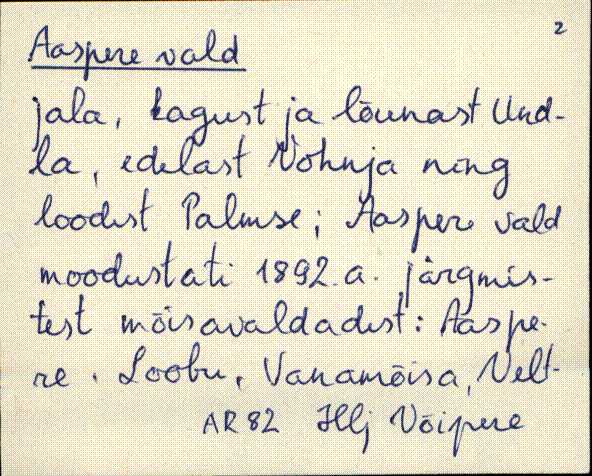 2
Aaspere vald
jala, kagust ja lõunast Und-
la, edelast Vohnja ning
loodest Palmse; Aaspere vald
moodustati 1892.a. järgmis-
test mõisavaldadest: Aaspe-
re, Loobu, Vanamõisa, Velt-
AR 82 Hlj Võipere